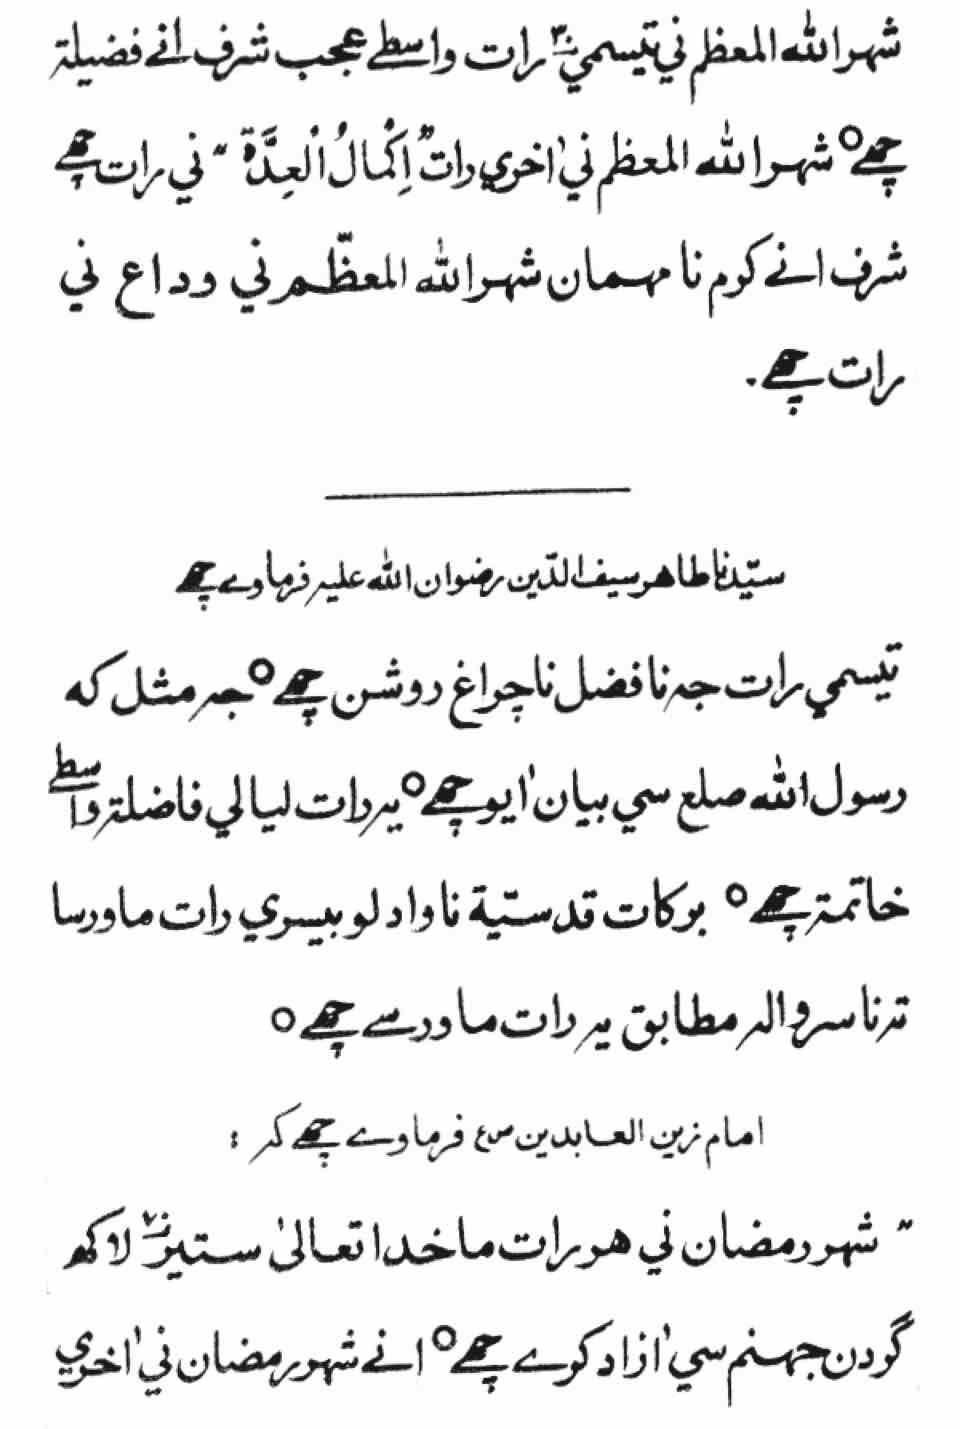 شهر الله المعظم ني تيسمي ٣٠ رات واسطے عجب شرف انے فضيلة
چھے○ شهر الله المعظم ني اٰخري رات " اِكْمَالُ الْعِدَّة " ني رات چھے
شرف انے كرم نا مهمان شهر الله المعظّم ني وداع ني
رات چھے.
سيّدنا طاهر سيف الدّين رضوان الله عليه فرماوے چھے
تيسمي رات جه نا فضل نا چراغ روشن چھے○ جه مثل كه
رسول الله صلع سي بيان اٰيو چھے○ يه رات ليالي فاضلة واسطے
خاتمة چھے○ بركات قدسيّة نا وادلو بيسري رات ما ورسا
ته نا سروالہ مطابق يه رات ما ورسے چھے○
امام زين العابدين ص ع فرماوے چھے كه :
" شهر رمضان ني هر رات ما خدا تعالىٰ ستير ٧٠ لاكھ
گردن جهنم سي اٰزاد كرے چھے○ انے شهر رمضان ني اٰخري